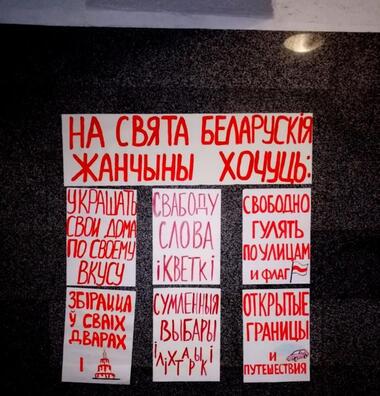 НА СВЯТА БЕЛАРУСКІЯ
ЖАНЧЫНЫ ХОЧУЦЬ:
УКРАШАТЬ
СВОИ ДОМА
ПО СВОЕМУ
ВКУСУ
СВАБОДУ
СЛОВА
і КВЕТКІ
СВОБОДНО
ГУЛЯТЬ
ПО УЛИЦАМ
И ФЛАГ
ЗБІРАЦЦА
Ў СВАІХ
ДВАРАХ
І
СУМЛЕННЫЯ
ВЫБАРЫ
ОТКРЫТЫЕ
ГРАНИЦЫ
И
ПУТЕШЕСТВИЯ